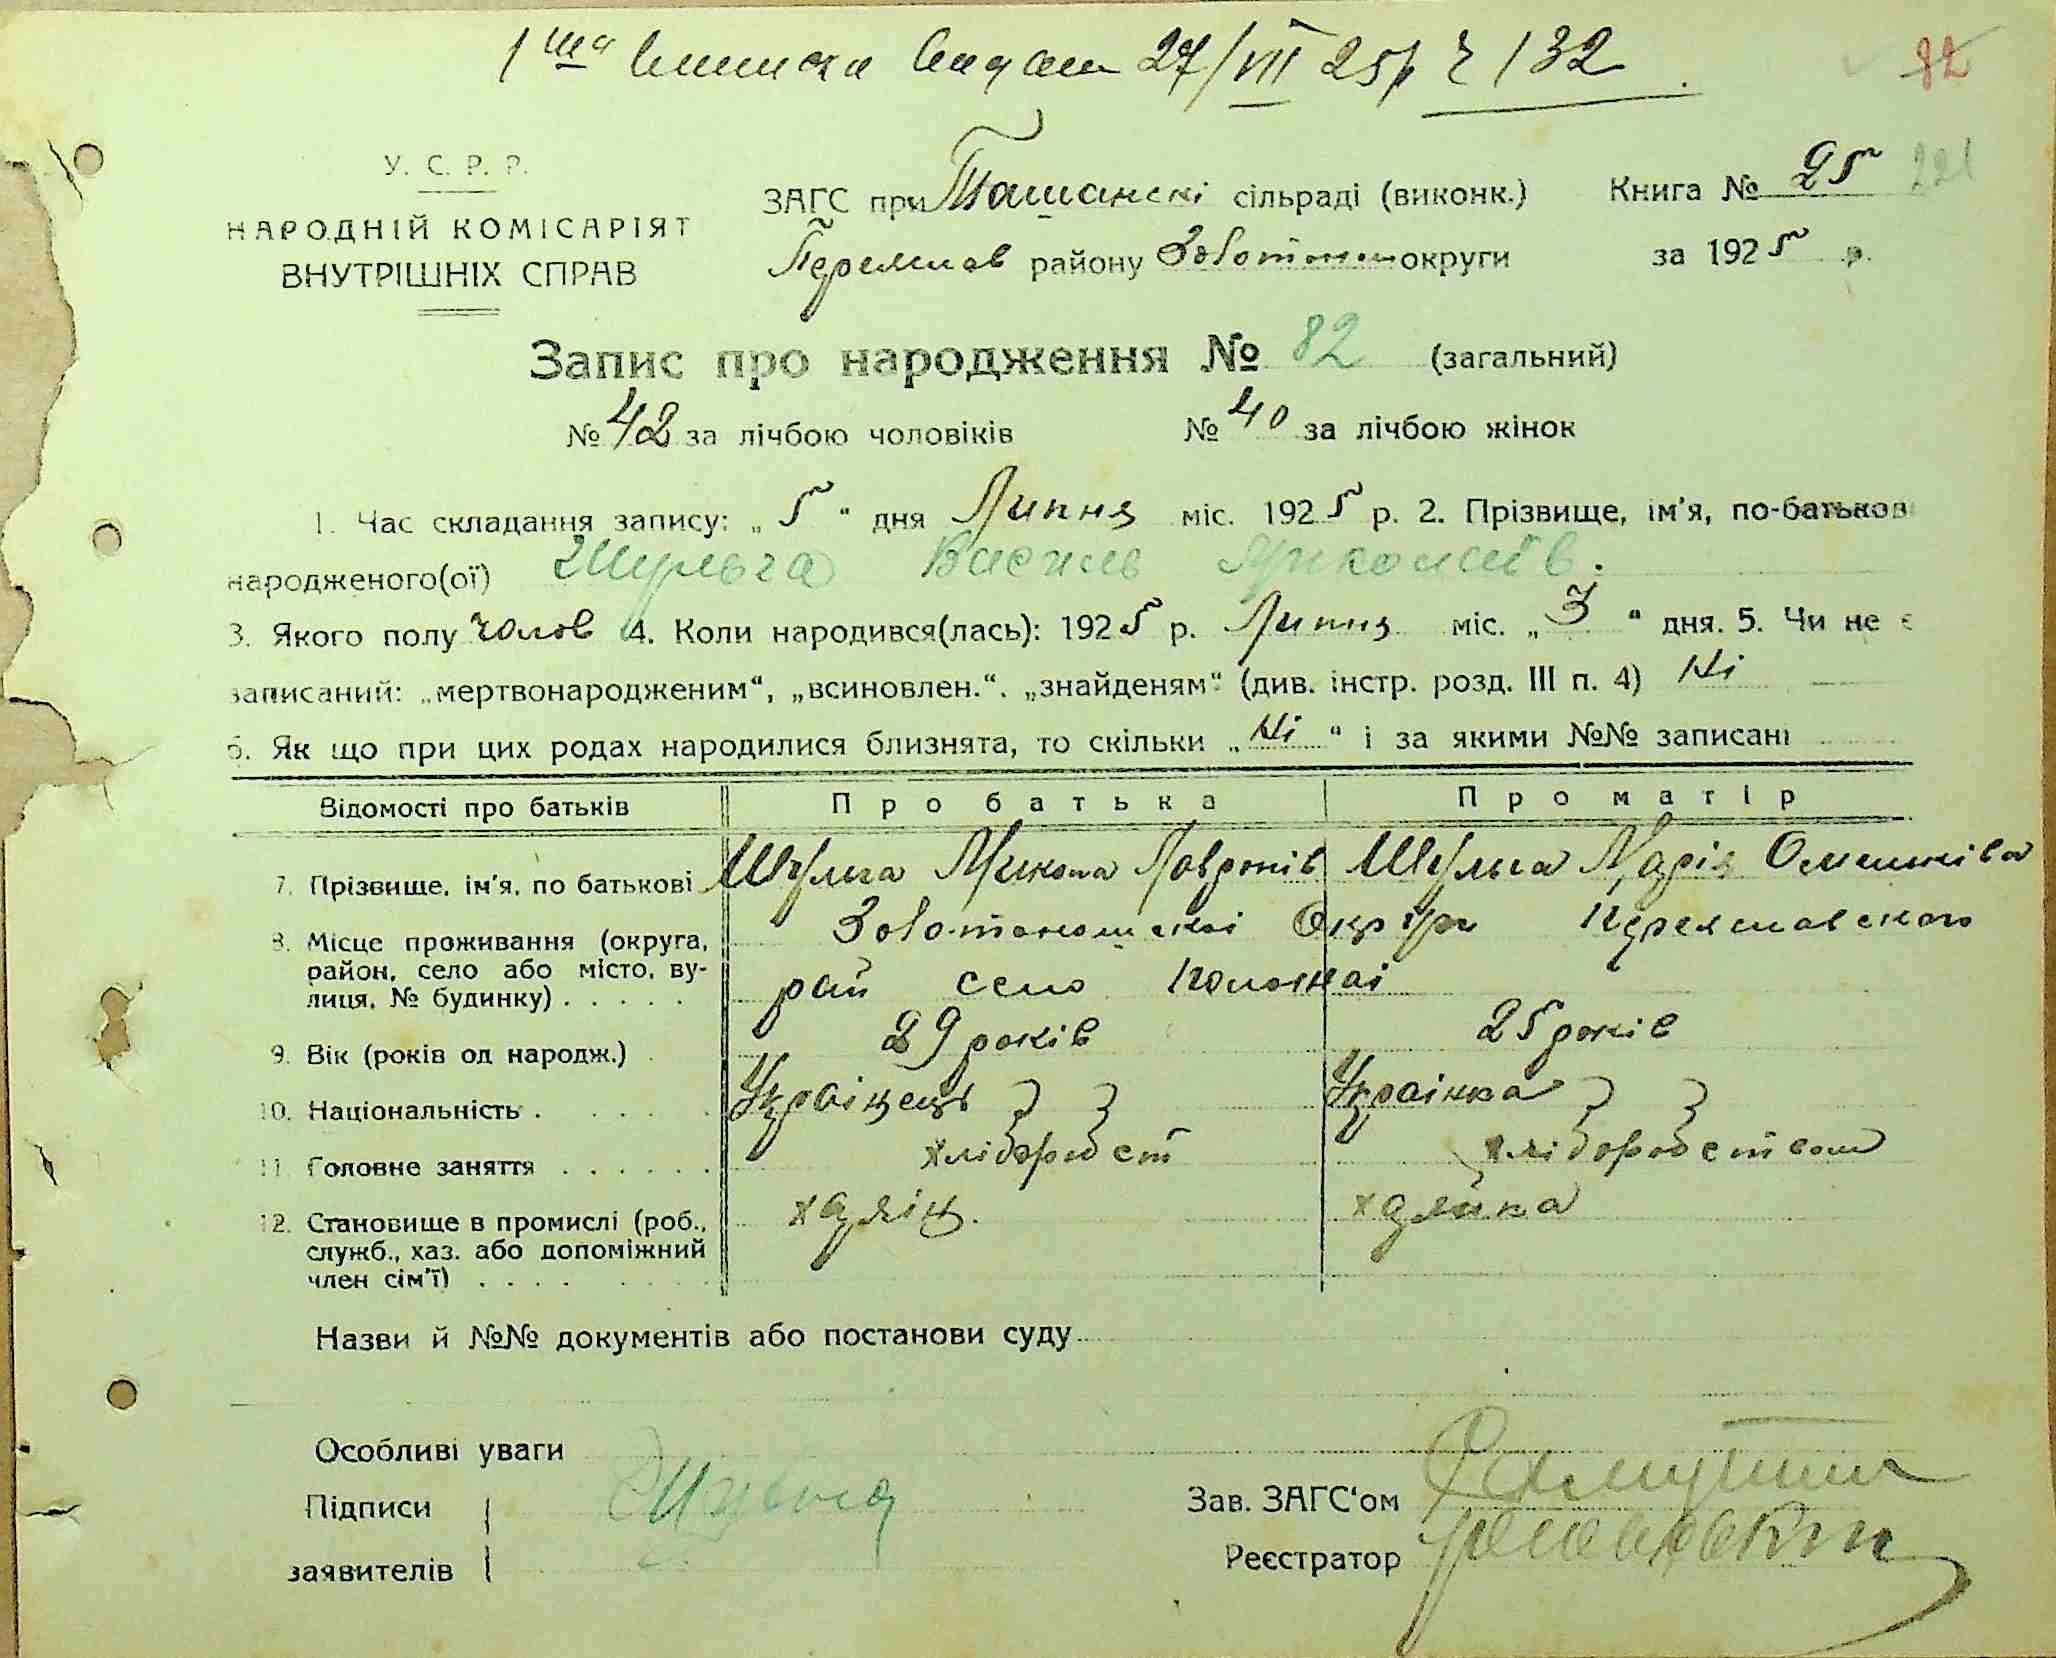 1ша виписка видана 27/VII 25р ч 132
82
У. С. Р. Р.
НАРОДНІЙ КОМІСАРІЯТ
ВНУТРІШНІХ СПРАВ
ЗАГС при Ташанскі сільраді (виконк.) Книга № 25 221
Переяслав району Золотонош округи за 1925 р.
Запис про народження № 82 (загальний)
№ 42 за лічбою чоловіків № 40 за лічбою жінок
1. Час складання запису: „ 5 “ дня Липня міс. 1925 р. 2. Прізвище, ім'я, по-батьков
народженого(ої) Шульга Василь Миколаїв.
3. Якого полу чолов 4. Коли народився(лась): 1925 р. Липня міс. „ 3 “ дня. 5. Чи не є
записаний: „мертвонародженим“, „всиновлен.“. „знайденям“ (див. інстр. розд. III п. 4) Ні
6. Як що при цих родах народилися близнята, то скільки „ Ні “ і за якими №№ записані
Відомості про батьків Про батька Про матір
7. Прізвище, ім'я, по батькові Шульга Микола Лавронів Шульга Марія
8. Місце проживання (округа, район, село або місто, вулиця, № будинку) . . . . . Золотоношскоі Округи Переяславского
рай село
9. Вік (років од народж.) 29 років 25 років
10. Національність . . . . . Українець Українка
11. Головне заняття . . . . . . хлібороб ст хліборобством
12. Становище в промислі (роб., служб., хаз. або допоміжний член сім'ї) . . . . хазяїн. хазяйка
Назви й №№ документів або постанови суду
Особливі уваги
Підписи заявителів Шульга
Зав. ЗАГС'ом
Реєстратор